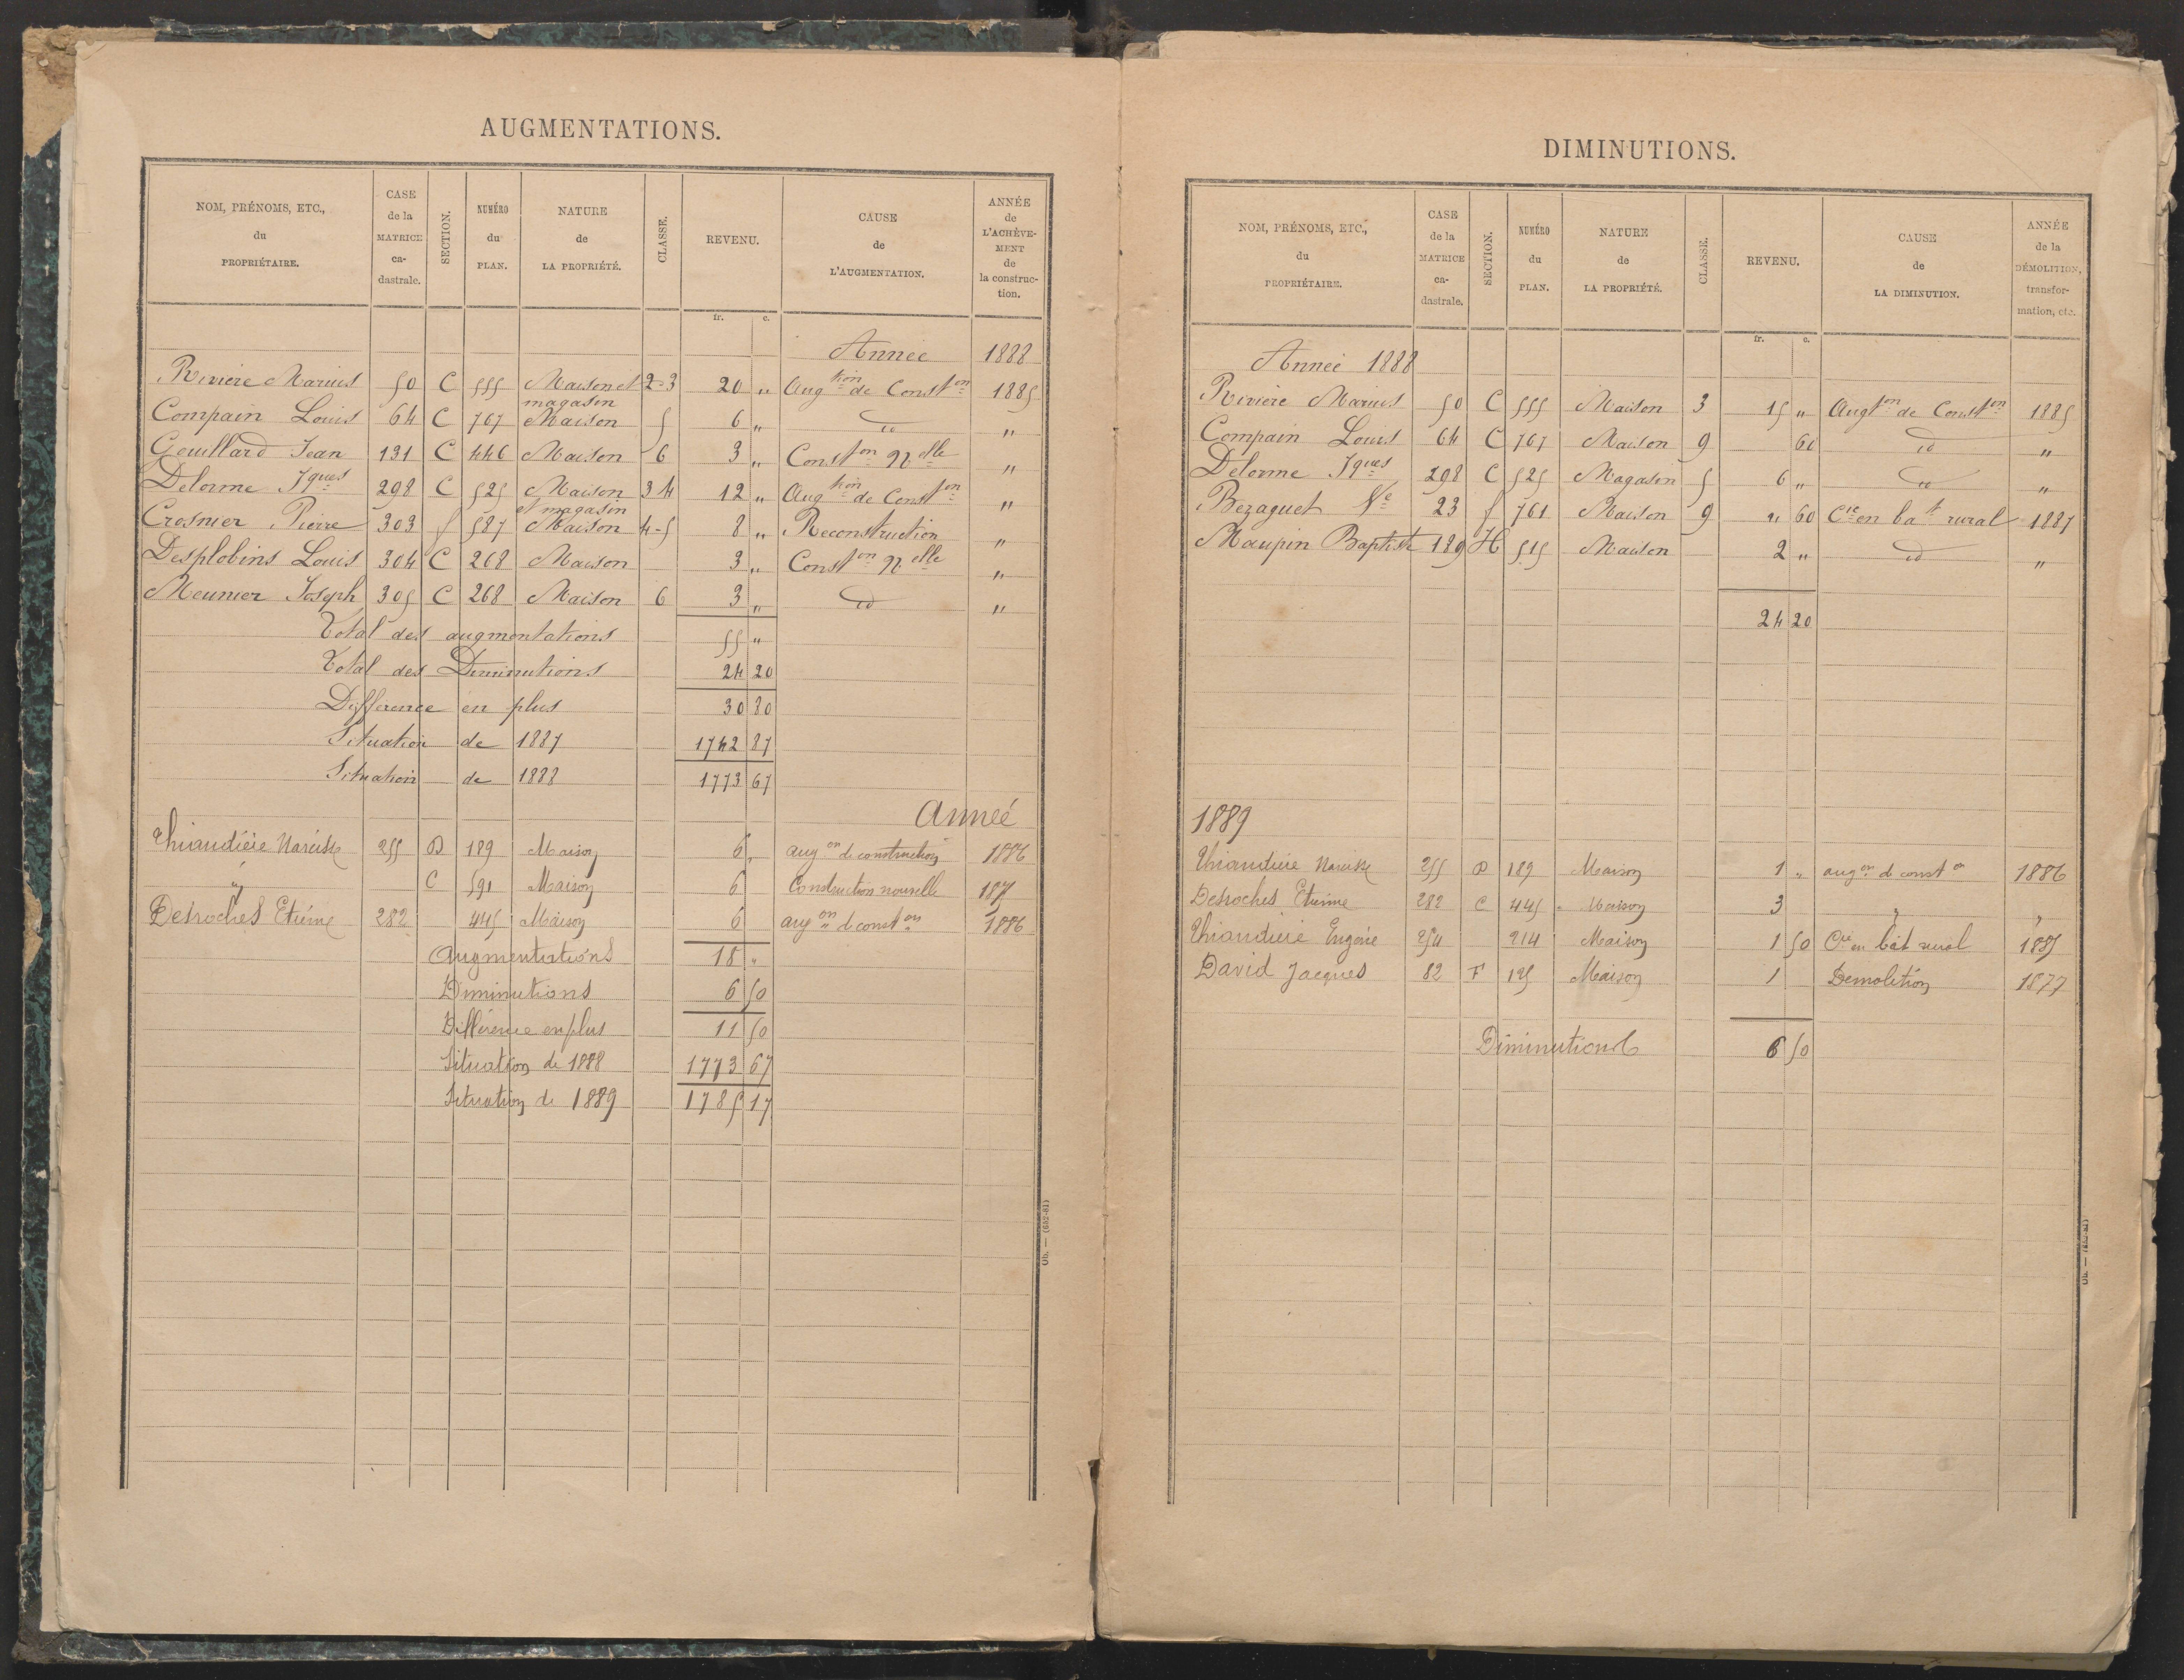 AUGMENTATIONS.
NOM, PRÉNOMS, ETC., du PROPRIÉTAIRE. CASE de la MATRICE ca-dastrale. SECTION. NUMÉRO du PLAN. NATURE de LA PROPRIÉTÉ. CLASSE. REVENU. CAUSE de L'AUGMENTATION. ANNÉE de L'ACHÈVE-MENT de la construc-tion.
fr. c.
Année 1888
Riviere Marius 50 C 555 Maison et magasin 2-3 20 " Aug tion de Const on 1885
Compain Louis 64 C 707 Maison 5 6 " id "
Gouillard Jean 131 C 446 Maison 6 3 " Const on Nelle "
Delorme Jques 298 C 525 Maison et magasin 3 4 12 " Aug tion de Const on "
Crosnier Pierre 303 f 587 Maison 4-5 8 " Reconstruction "
Desplobins Louis 304 C 268 Maison 3 " Const on Nelle "
Meunier Joseph 305 C 268 Maison 6 3 " id "
Total des augmentations 55 "
Total des Diminutions 24 20
Différence en plus 30 80
Situation de 1887 1742 87
Situation de 1888 1773 67
Année
Thiaudière Narcisse 255 D 189 Maison 6 " aug on de construction 1886
" C 591 Maison 6 Construction nouvelle
Desroches Etiénne 282 445 Maison 6 aug on d const on 1886
Augmentations 18 "
Diminutions 6 50
Différence en plus 11 50
Situation de 1888 1773 67
Situation de 1889 1785 17
Ob. — (652-81)
DIMINUTIONS.
NOM, PRÉNOMS, ETC., du PROPRIÉTAIRE. CASE de la MATRICE ca-dastrale. SECTION. NUMÉRO du PLAN. NATURE de LA PROPRIÉTÉ. CLASSE. REVENU. CAUSE de LA DIMINUTION. ANNÉE de la DÉMOLITION, transfor-mation, etc.
fr. c.
Année 1888
Riviere Marius 50 C 555 Maison 3 15 " Augt on de Const on 1885
Compain Louis 64 C 707 Maison 9 60 id "
Delorme Jques 298 C 525 Magasin 5 6 " id "
Bezaguet Ve 23 f 761 Maison 9 " 60 Cie en bat rural 1887
Maupin Baptiste 189 H 515 Maison 2 " id "
24 20
1889
Thiaudière Narcisse 255 D 189 Maison 1 " aug on d const on 1886
Desroches Etienne 282 C 445 Maison 3 " "
Thiaudière Eugène 254 214 Maison 1 50 Cie en bât rural 1885
David Jacques 82 F 125 Maison 1 Demolition 1877
Diminutions 6 50